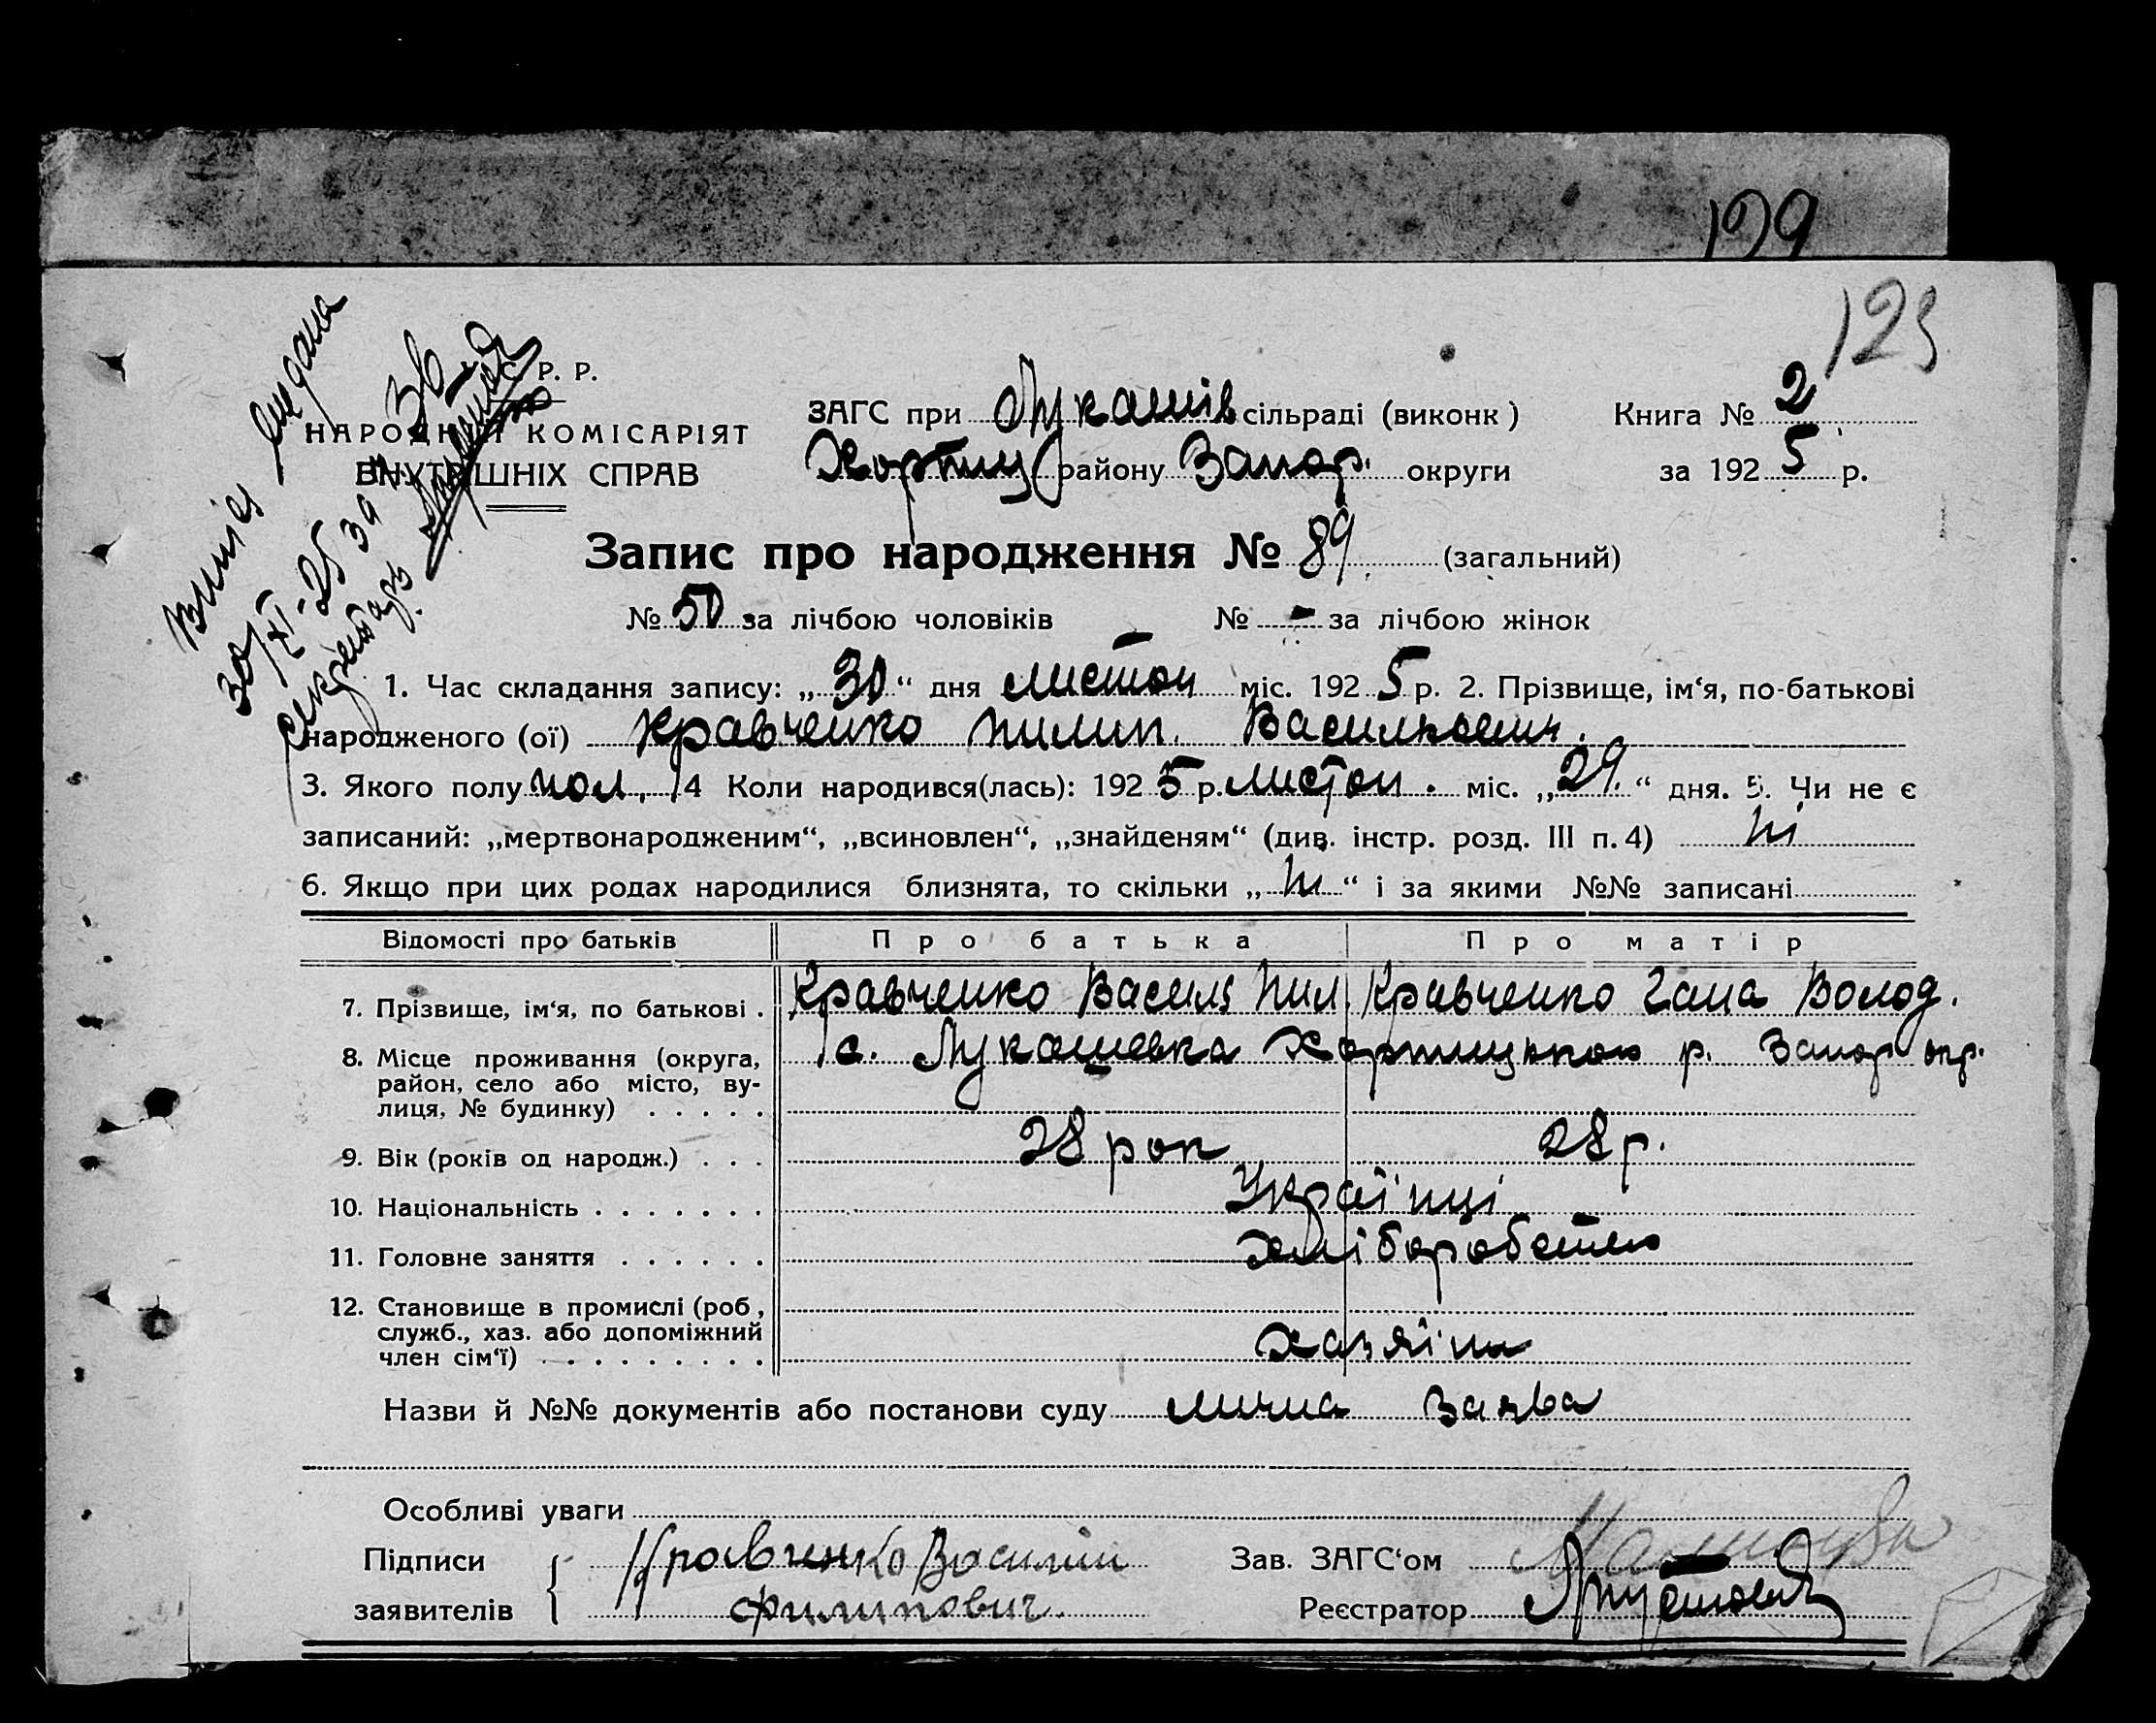 199
123
Випіс видана
30/XI-25 за № 36
секретарь
С. Р. Р.
НАРОДНІЙ КОМІСАРІЯТ
ВНУТРІШНІХ СПРАВ
ЗАГС при Лукашів сільраді (виконк)
Хортиц району Запор. округи
Книга № 2
за 1925 р.
Запис про народження № 89 (загальний)
№ 50 за лічбою чоловіків № - за лічбою жінок
1. Час складання запису: „30“ дня листоп міс. 1925 р. 2. Прізвище, ім‘я, по-батькові
народженого (ої) Кравченко Пилип Василькович.
3. Якого полу чол. 4 Коли народився(лась): 1925 р. листоп. міс. „29.“ дня. 5. Чи не є
записаний: „мертвонародженим“, „всиновлен“, „знайденям“ (див. інстр. розд. III п. 4) ні
6. Якщо при цих родах народилися близнята, то скільки „ні“ і за якими №№ записані
Відомості про батьків Про батька Про матір
7. Прізвище, ім‘я, по батькові . Кравченко Василь Пил. Кравченко Гана Волод.
8. Місце проживання (округа, с. Лукашевка Хортицького р. Запор окр.
район, село або місто, ву-
лиця, № будинку) . . . . .
9. Вік (років од народж.) . . . 28 рок 28 р.
10. Національність . . . . . . . Українці
11. Головне заняття . . . . . . хліборобство
12. Становище в промислі (роб,
служб., хаз. або допоміжний
член сім‘ї) . . . . . . . . . хазяїни
Назви й №№ документів або постанови суду лична заява
Особливі уваги
Підписи Кравченко Василий
заявителів Филипович
Зав. ЗАГС‘ом
Реєстратор